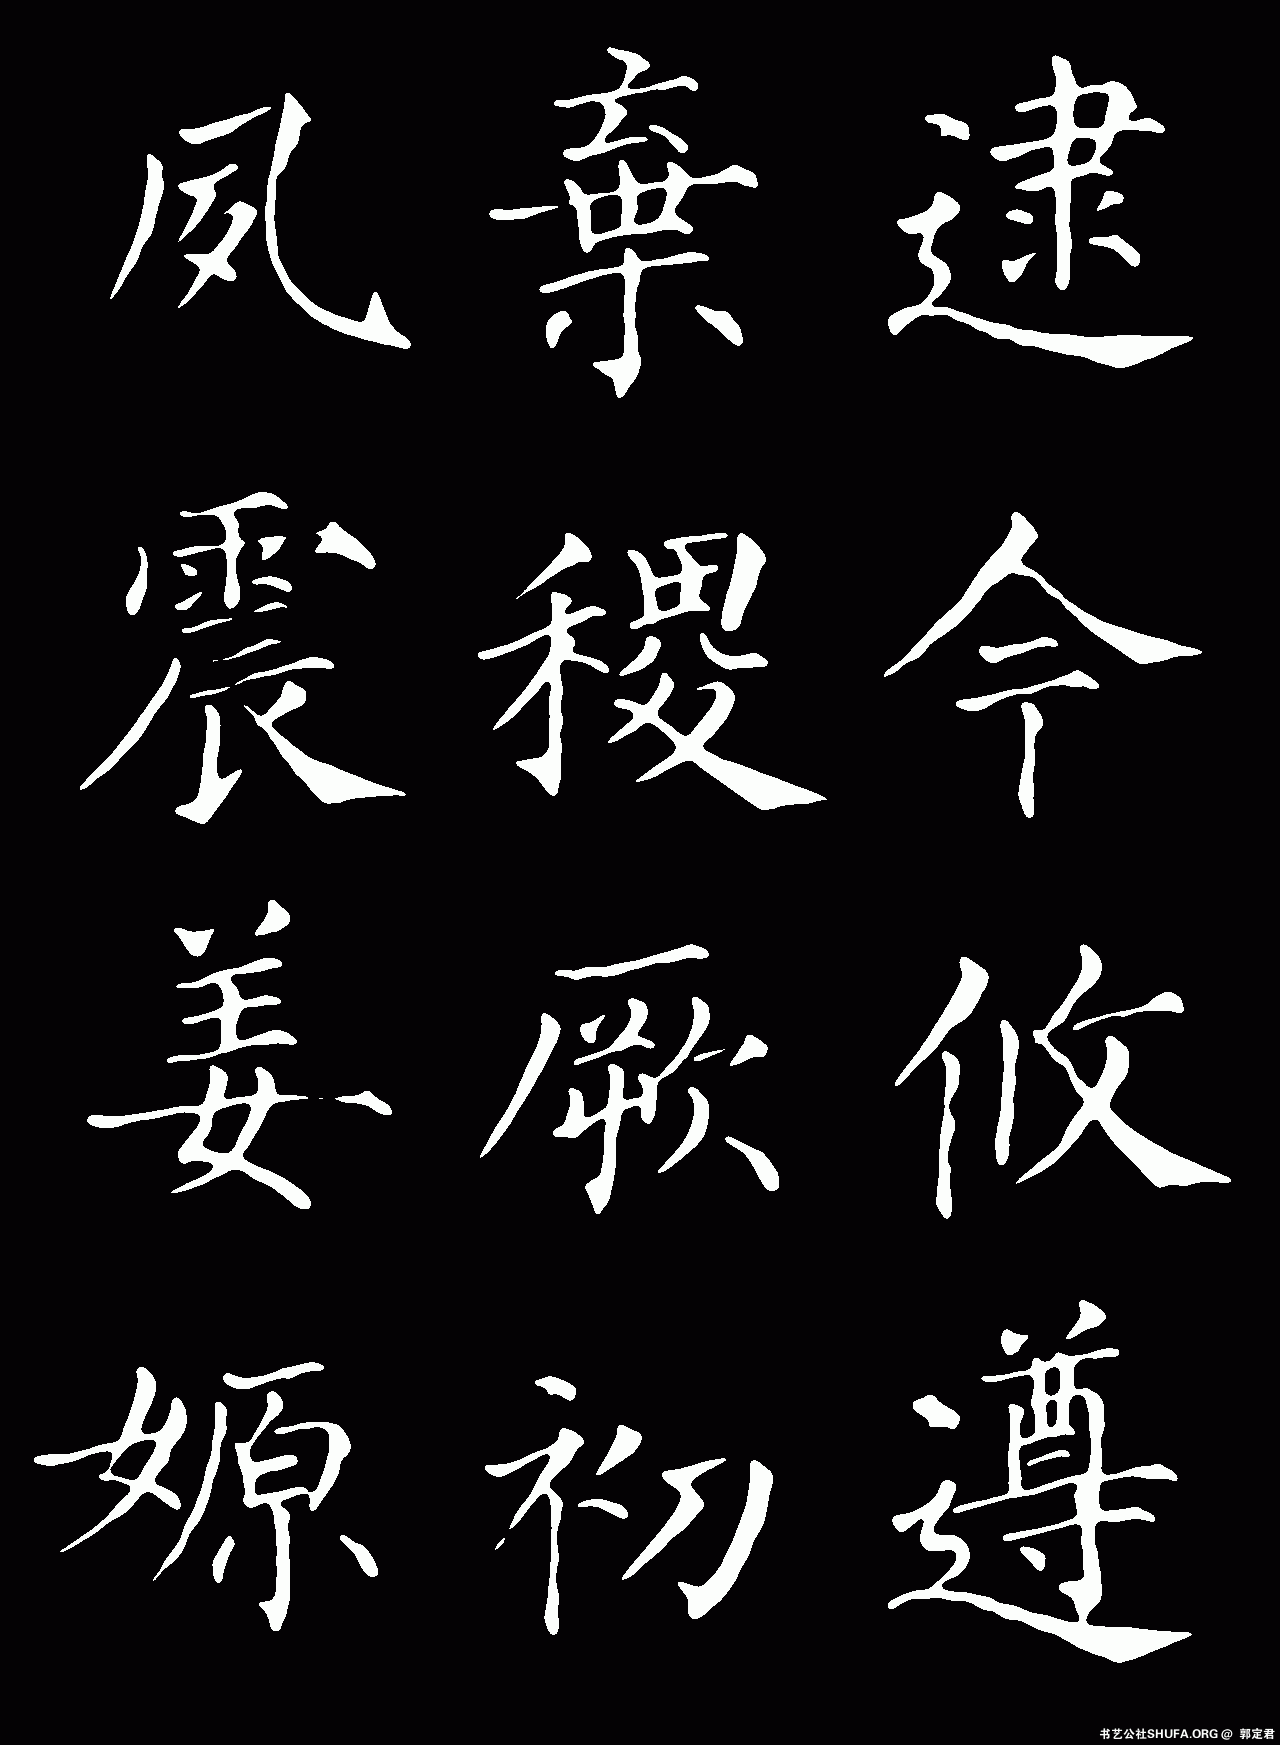 逮今攸遵
棄稷厥初
夙震姜嫄
书艺公社SHUFA.ORG @ 郭定君